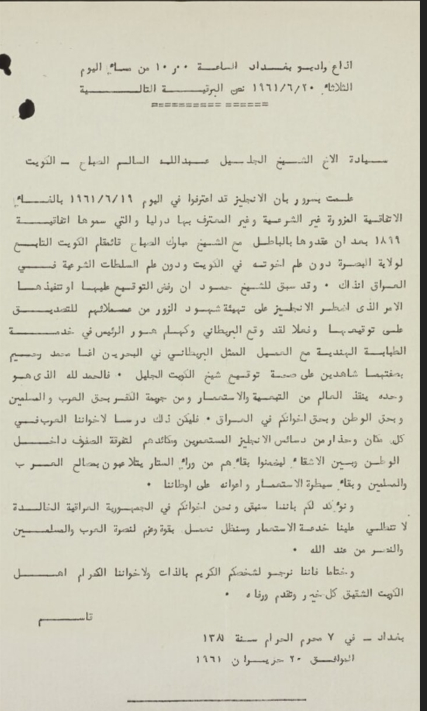 اذاع راديو بغداد الساعة ١٠٫٠٠ من مساء اليوم
الثلاثاء ١٩٦١/٦/٢٠ نص البرقية التالية
سيادة الاخ الشيخ الجليل عبدالله السالم الصباح - الكويت
علمت بسرور بان الانجليز قد اعترفوا في اليوم ١٩٦١/٦/١٩ بالغاء
الاتفاقية المزورة غير الشرعية وغير المعترف بها دوليا والتي سموها اتفاقية
١٨٩٩ بعد ان عقدوها بالباطل مع الشيخ مبارك الصباح قائمقام الكويت التابع
لولاية البصرة دون علم اخوته في الكويت ودون علم السلطات الشرعية في
العراق آنذاك ٠ وقد سبق للشيخ حمود ان رفض التوقيع عليها او تنفيذها
الامر الذى اضطر الانجليز على تهيئة شهود الزور من عملائهم للتصديق
على توقيعها وفعلا لقد وقع البريطاني وكهام هور الرئيس في خدمة
الطبابة الهندية مع العميل الممثل البريطاني في البحرين اغا محمد رحيم
بصفتهما شاهدين على صحة توقيع شيخ الكويت الجليل ٠ فالحمد لله الذى هو
وحده ينقذ العالم من التبعية والاستعمار ومن جريمة الكفر بحق العرب والمسلمين
وبحق الوطن وبحق اخوانكم في العراق ٠ فليكن ذلك درسا لاخواننا العرب في
كل مكان وحذار من دسائس الانجليز المستعمرين ومكائدهم لتفرقة الصفوف داخل
الوطن وبين الاشقاء ليضمنوا بقاءهم من وراء الستار يتلاعبون بمصالح العرب
والمسلمين وبقاء سيطرة الاستعمار واعوانه على اوطاننا ٠
ونؤكد لكم باننا سنبقى ونحن اخوانكم في الجمهورية العراقية الخالدة
لا تنطلي علينا خدعة الاستعمار وسنظل نعمل بقوة وعزم لنصرة العرب والمسلمين
والنصر من عند الله ٠
وختاما فاننا نرجو لشخصكم الكريم بالذات ولاخواننا الكرام اهل
الكويت الشقيق كل خير وتقدم ورفاه ٠
قاسم
بغداد - في ٧ محرم الحرام سنة ١٣٨١
الموافق ٢٠ حزيران ١٩٦١